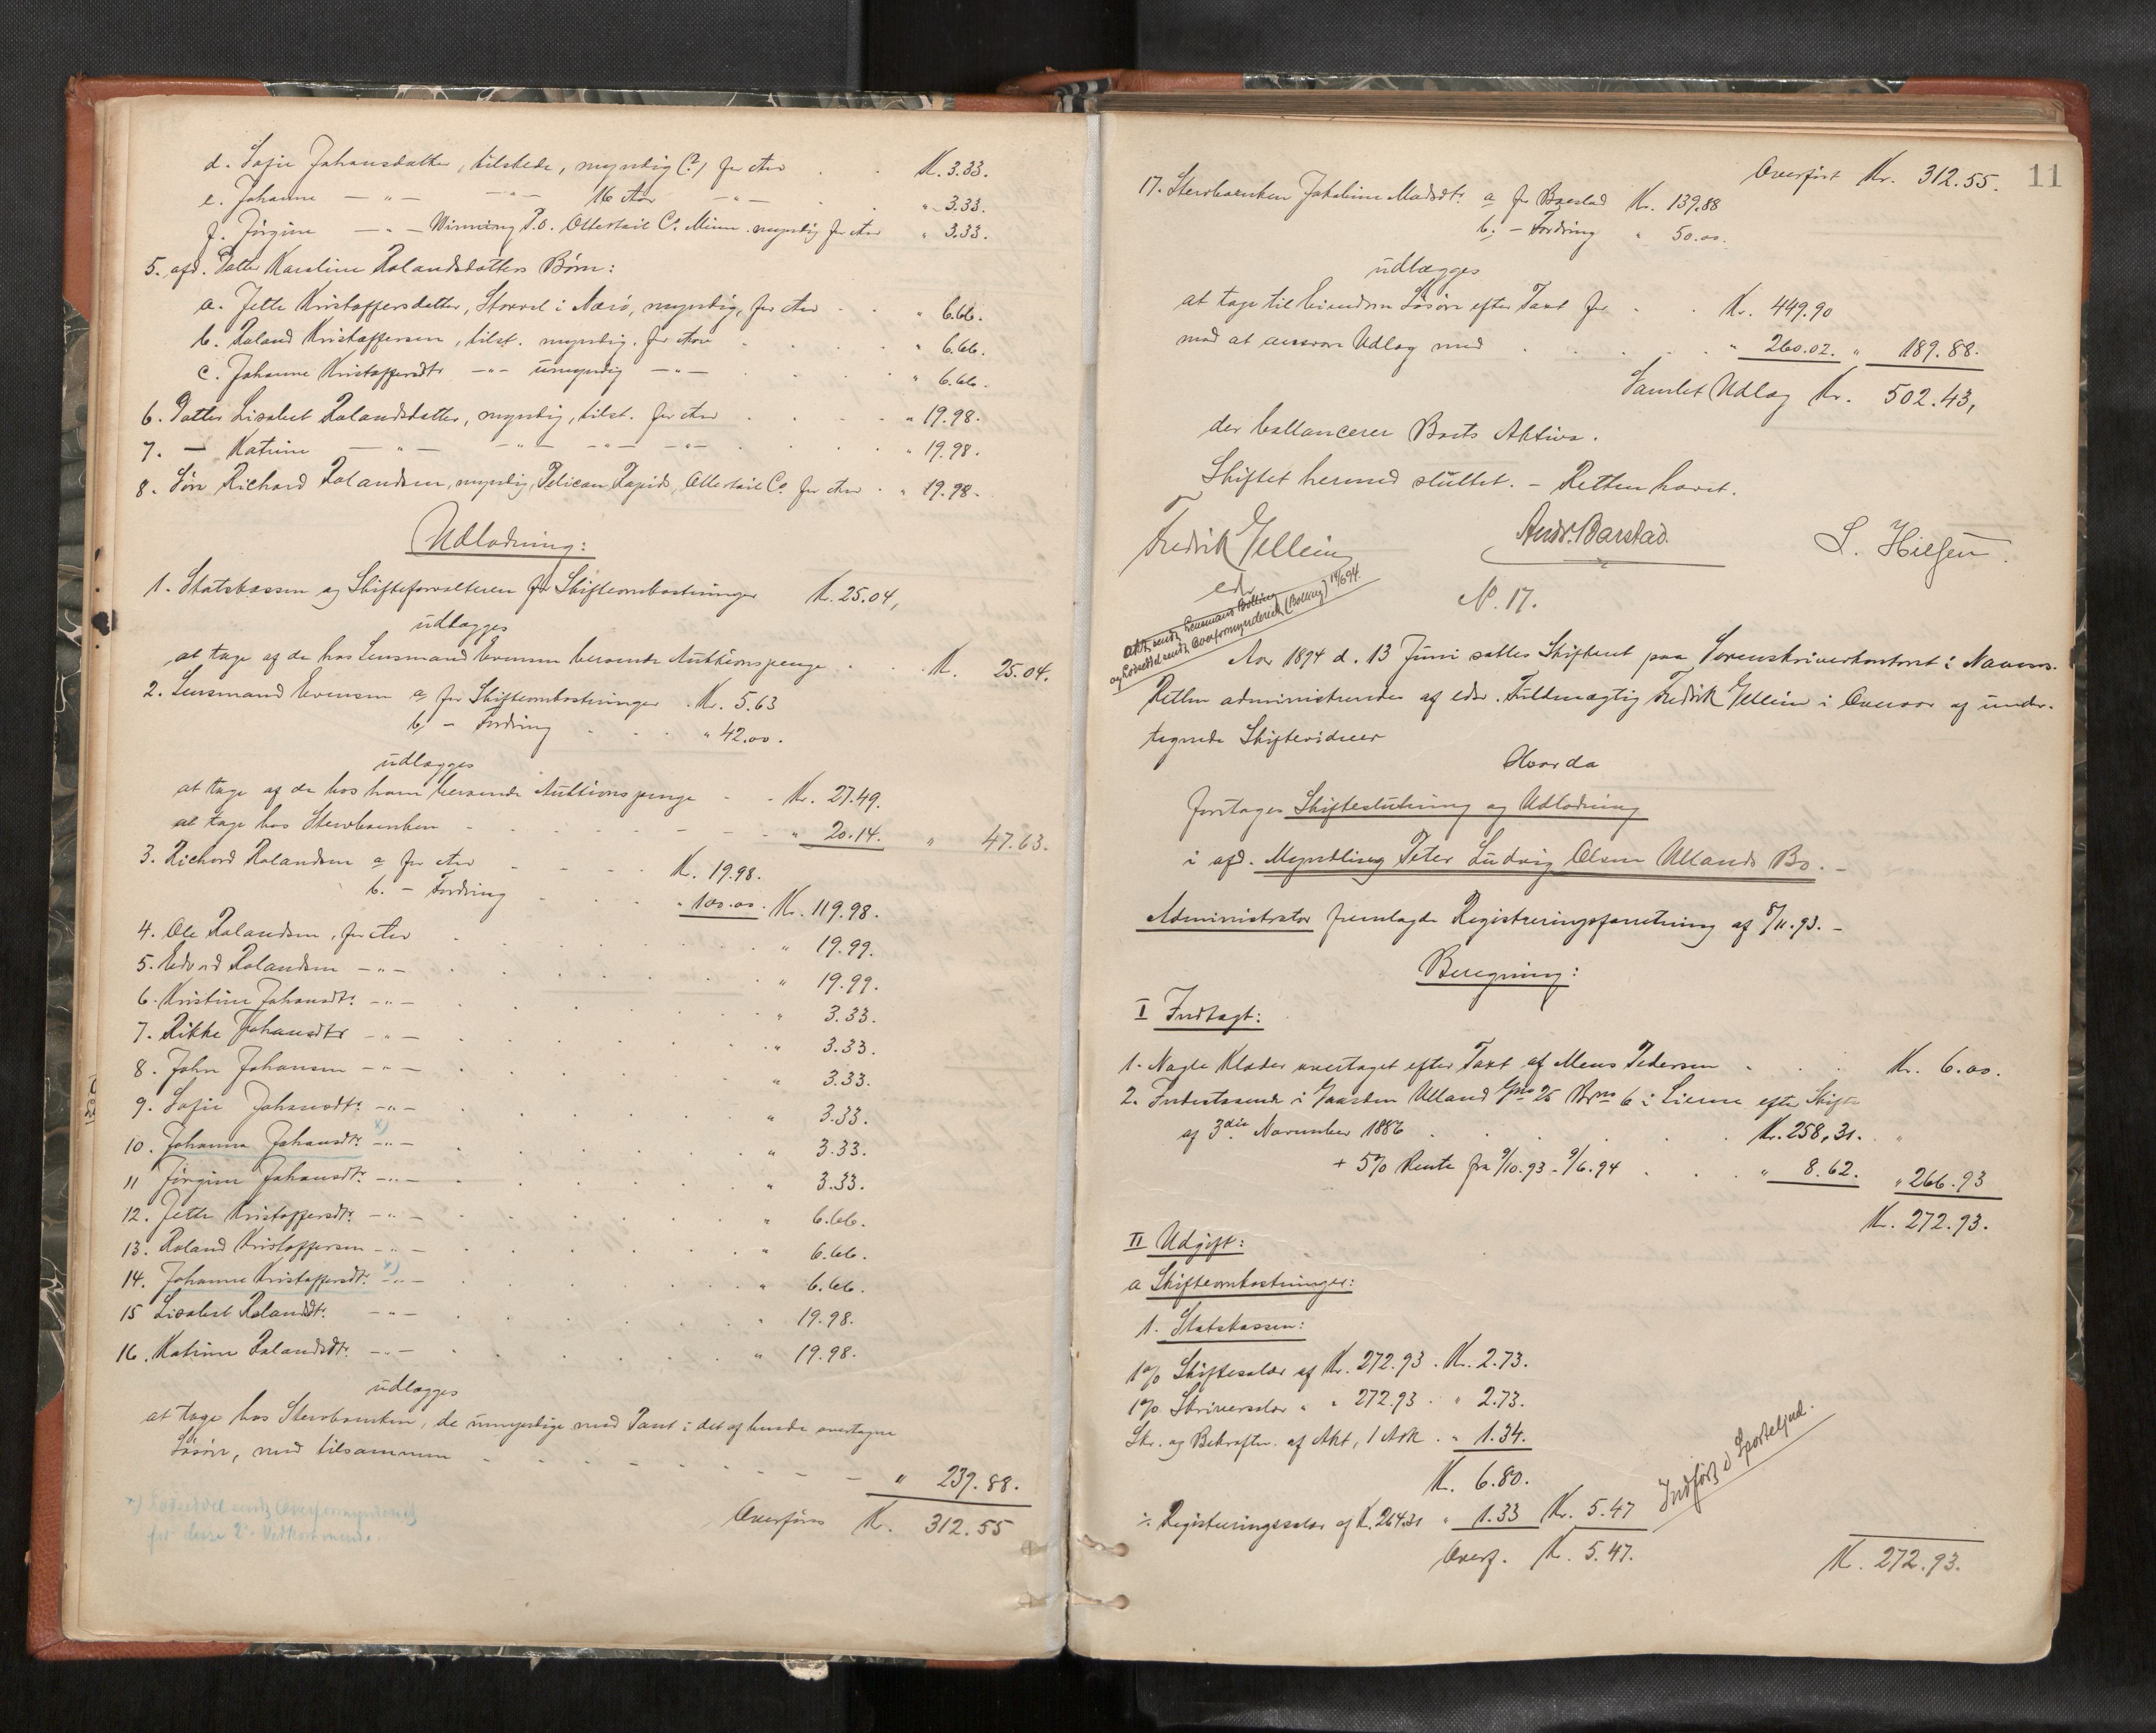 d. Sofie Johansdatter, tilstede, myndig (?) for Arv . . K. 3.33.
e. Johanne — " — — " — 16 Aar — " — . . " 3.33.
f. Jörgine — " — Winning P.O. Ottertail Co. Minn. myndig for Arv " 3.33.
5. afd. Datter Karoline Rolandsdatters Børn:
a. Jette Kristoffersdatter, i Nærö, myndig, for Arv . . " 6.66.
b. Roland Kristoffersen, tilst. myndig. for Arv . . " 6.66.
c. Johanne Kristoffersdtr — " — umyndig — " — . . " 6.66.
6. Datter Lisabet Rolandsdatter, myndig, tilst. for Arv . . " 19.98.
7. — Katrine — " — — " — — " — — " — . . " 19.98.
8. Sön Richard Rolandsen, myndig, Pelican Rapids, Ottertail Co. for Arv . " 19.98.
Udlodning:
1. Statskassen og Skifteforvalteren for Skifteomkostninger K. 25.04,
udlægges
at tage af de hos Lensmand Evensen beroende Auktionspenge . . . K. 25.04.
2. Lensmand Evensen a, for Skifteomkostninger . Kr. 5.63
b, — Fordring . . . " 42.00.
udlægges
at tage af de hos ham beroende Auktionspenge - - Kr. 27.49.
at tage hos Stervboenken - - - " 20.14. " 47.63.
3. Richard Rolandsen a for Arv - - - K. 19.98.
b. — Fordring . . . " 100.00. Kr. 119.98.
4. Ole Rolandsen, for Arv . . . " 19.99.
5. Edvard Rolandsen — " — . . . " 19.99.
6. Kristine Johansdtr. — " — . . . " 3.33.
7. Rikke Johansdtr — " — . . . " 3.33.
8. John Johansen — " — . . . " 3.33.
9. Sofie Johansdtr. — " — . . . " 3.33.
10. Johanna Johansdtr. x) — " — . . . " 3.33.
11 Jörgine Johansdtr. — " — . . . " 3.33.
12. Jette Kristoffersdtr. — " — . . . " 6.66.
13. Roland Kristoffersen — " — . . . " 6.66.
14. Johanne Kristoffersdtr. x) — " — . . . " 6.66.
15 Lisabet Rolandsdtr. — " — . . . " 19.98.
16. Katrine Rolandsdtr. — " — . . . " 19.98.
udlægges
at tage hos Stervboenken, de umyndige med Pant i det af hende overtagne
Lösöre, med tilsammen - - - " 239.88.
Overføres K. 312.55
x) Lodseddel sendt Overformynderiet
for disse 2's Vedkommende.
11
Overført Kr. 312.55.
17. Stervboenken Jakobine Madsdtr. a for Boeslod Kr. 139.88
b. — Fordring " 50.00.
udlægges
at tage til Eiendom Lösöre efter Taxt for . . Kr. 449.90
mod at ansvare Udlæg med . . . " 260.02. " 189.88.
Samlet Udlæg Kr. 502.43,
der ballancerer Boets Aktiva.
Skiftet hermed sluttet. — Retten hævet.
Fredrik Gellein Andr. Barstad. L. Hilsen
edsv.
Akt sendt Lensmand Bolling
og Lodseddel sendt Overformynderiet (Bolling) 14/6 94.
N. 17.
Aar 1894 d. 13 Juni sattes Skifteret paa Sorenskriverkontoret i Namsos.
Retten administreredes af edsv. Fuldmægtig Fredrik Gellein i Overvær af under-
tegnede Skiftevidner
Hvorda
foretoges Skifteslutning og Udlodning
i afd. Myndling Peter Ludvig Olsen Ullands Bo. —
Administrator fremlagde Registreringsforretning af 8/11.93. —
Beregning:
I Indtægt:
1. Nogle Klæder overtaget efter Taxt af Mens Pedersen . . . Kr. 6.00.
2. Indestaaende i Gaarden Ulland Gno 25 Brno 6 i Lierne efter Skifte
af 3die November 1886 . . . Kr. 258,31. "
+ 5% Rente fra 9/10.93 - 9/6.94 . . . " 8.62. " 266.93
K. 272.93.
II Udgift:
a Skifteomkostninger:
1. Statskassen:
1% Skiftesalær af Kr. 272.93 . K. 2.73.
1% Skriversalær " " 272.93 . " 2.73.
Skr. og Bekræftn. af Akt, 1 Ark . " 1.34.
K. 6.80.
÷ Registreringssalær af K. 264.31 " 1.33 Kr. 5.47
Indført i Sporteljnl.
Overf. K. 5.47. K. 272.93.